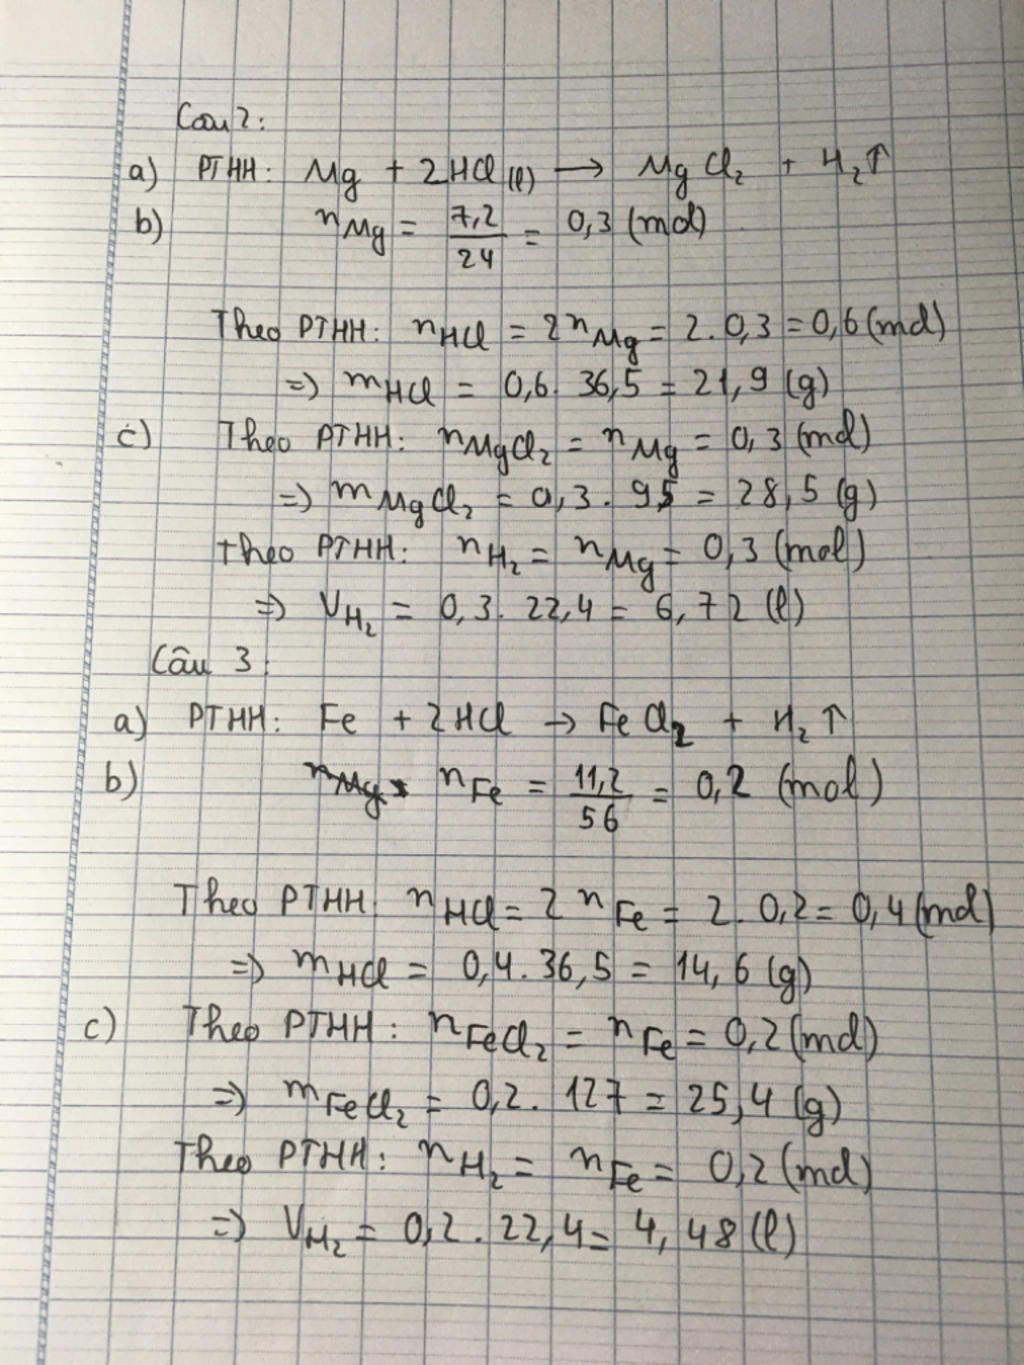 Câu 2:
a) PTHH: Mg + 2HCl (l) → MgCl₂ + H₂↑
b) nMg = 7,2/24 = 0,3 (mol)
Theo PTHH: nHCl = 2nMg = 2. 0,3 = 0,6 (mol)
=> mHCl = 0,6. 36,5 = 21,9 (g)
c) Theo PTHH: nMgCl₂ = nMg = 0,3 (mol)
=> mMgCl₂ = 0,3. 95 = 28,5 (g)
Theo PTHH: nH₂ = nMg = 0,3 (mol)
=> VH₂ = 0,3. 22,4 = 6,72 (l)
Câu 3:
a) PTHH: Fe + 2HCl → FeCl₂ + H₂↑
b) nFe = 11,2/56 = 0,2 (mol)
Theo PTHH: nHCl = 2nFe = 2. 0,2 = 0,4 (mol)
=> mHCl = 0,4. 36,5 = 14,6 (g)
c) Theo PTHH: nFeCl₂ = nFe = 0,2 (mol)
=> mFeCl₂ = 0,2. 127 = 25,4 (g)
Theo PTHH: nH₂ = nFe = 0,2 (mol)
=> VH₂ = 0,2. 22,4 = 4,48 (l)